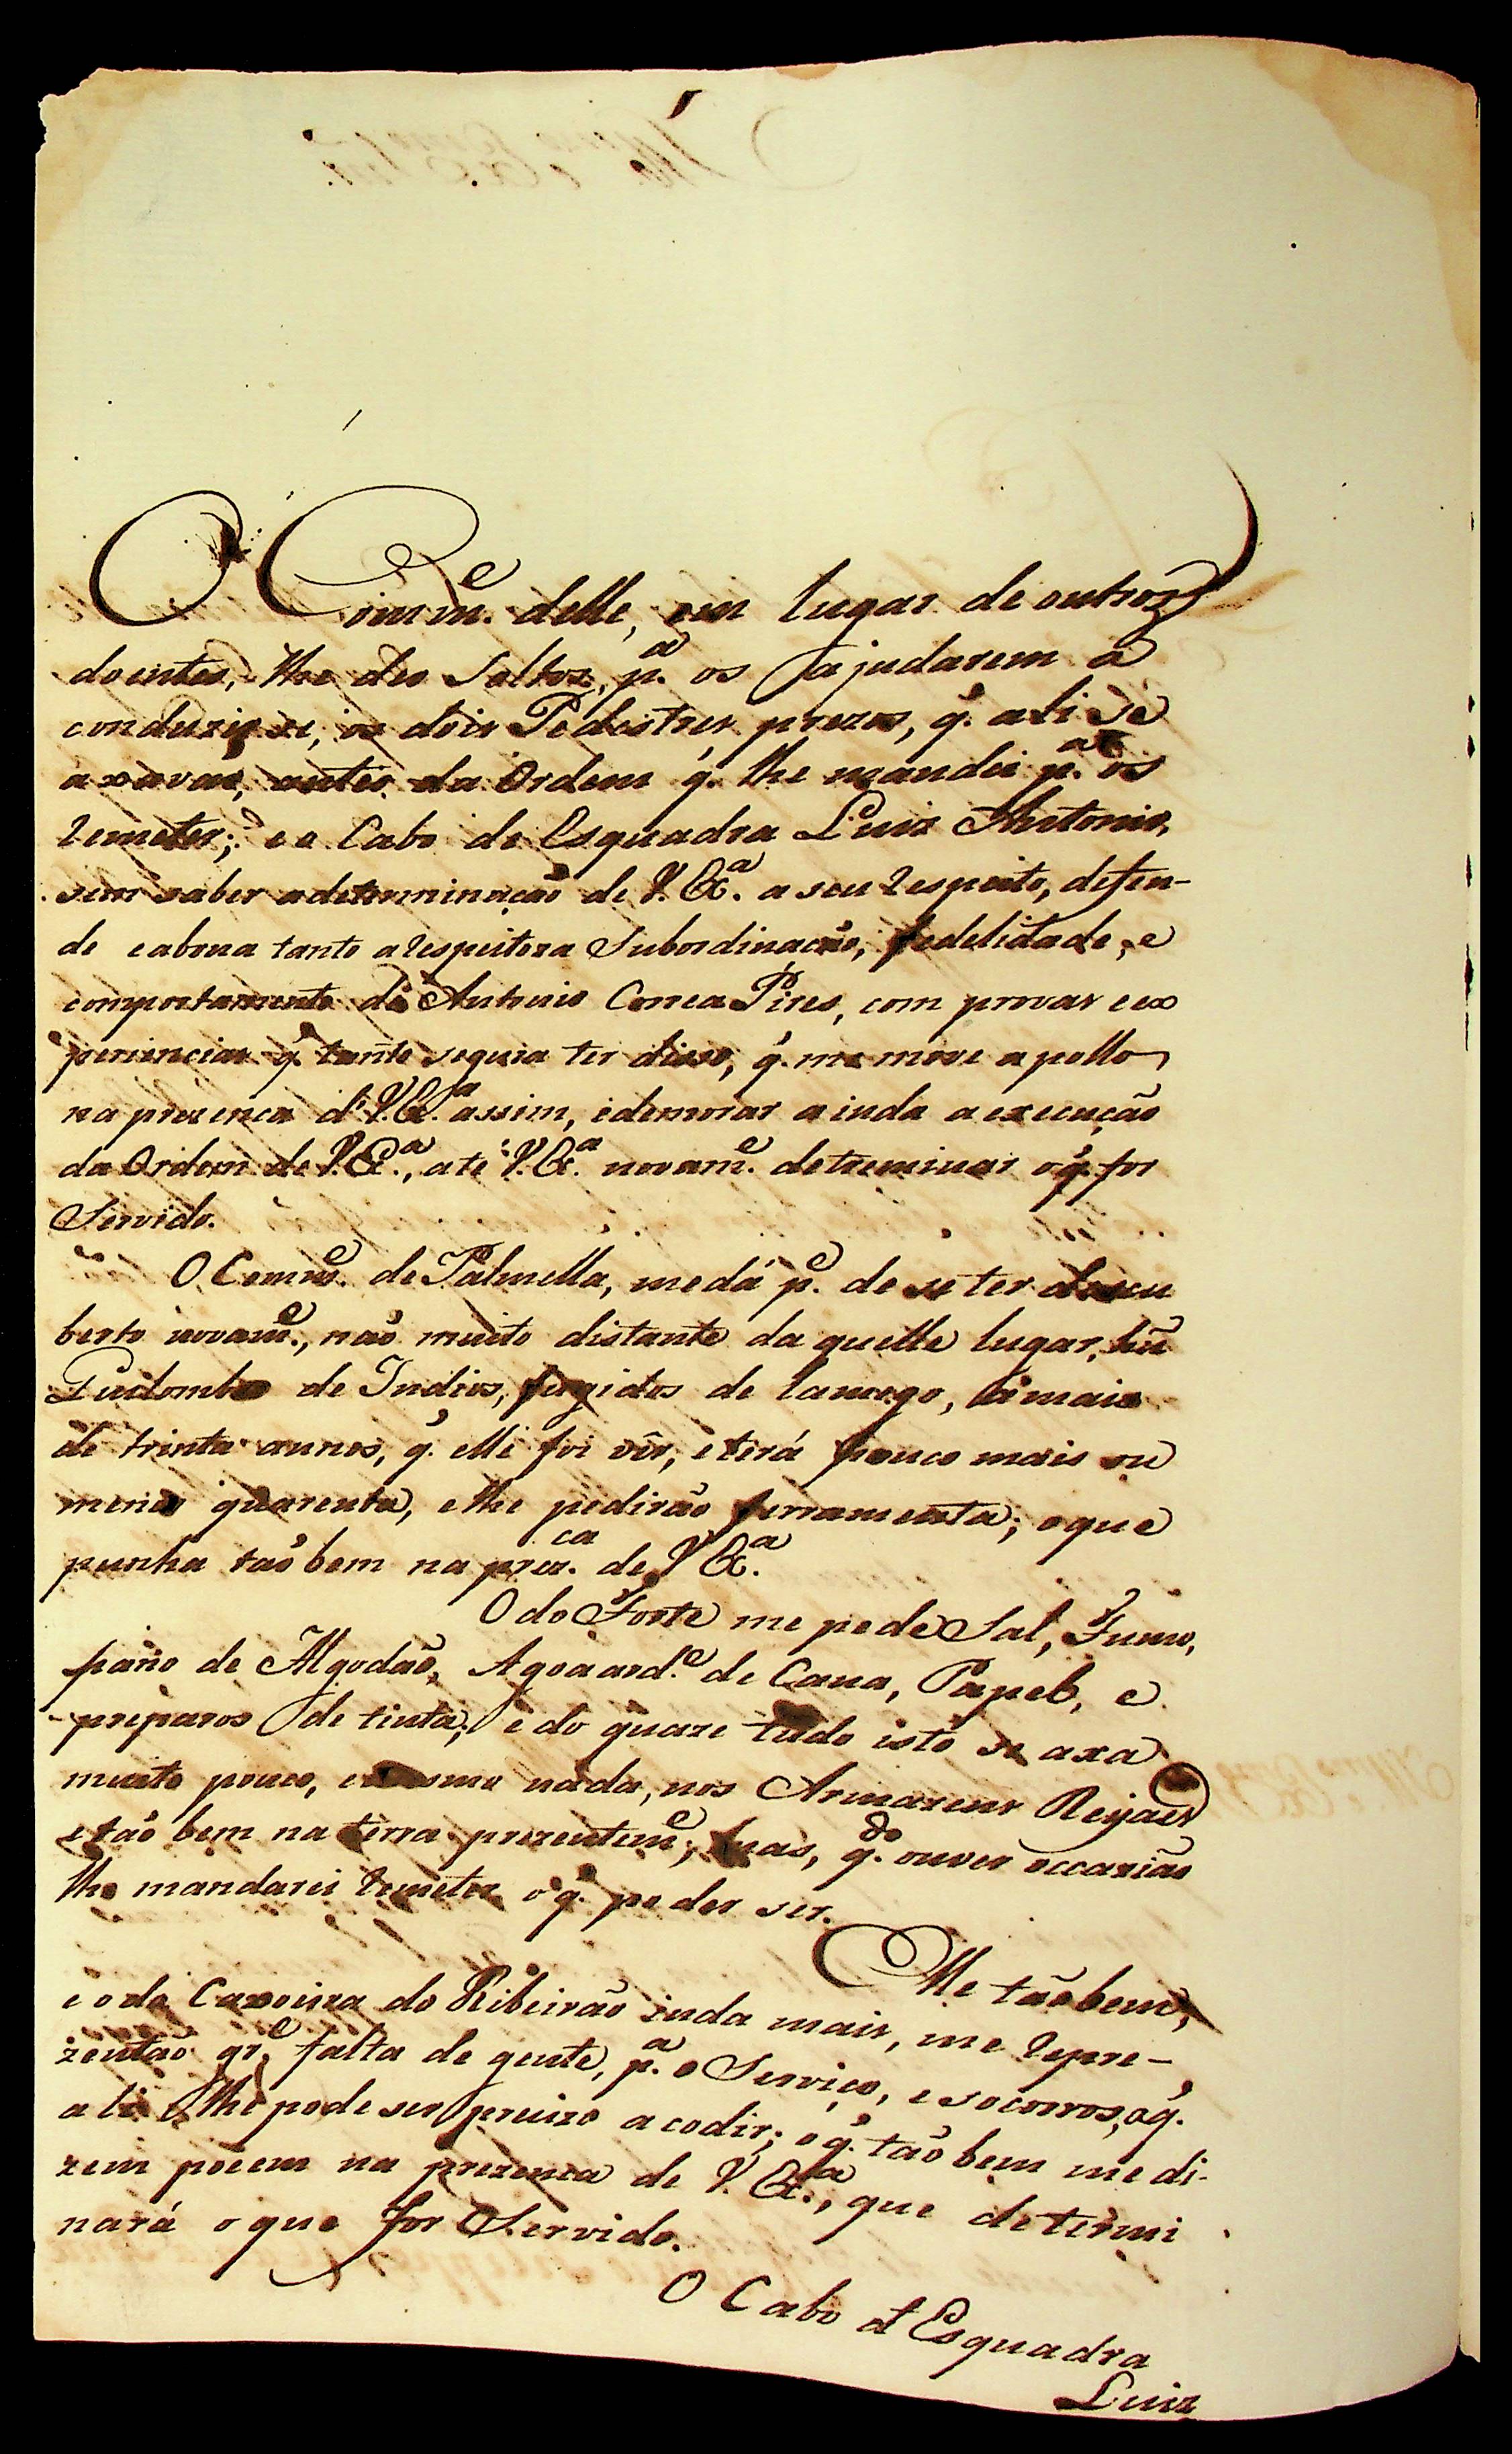 O Comm.e delle, em lugar de outros
doentes, lhe deo Soltos, p.a os ajudarem a
conduzirse, os dois Pedestres prezos, q. ali se
axavaõ, antes da Ordem q. lhe mandei p.a os
remeter; e o Cabo de Esquadra Luiz Antonio,
sem saber a determinação de V. Ex.a a seu respeito, defen-
de e abona tanto a respeitoza Subordinação, fedelidade, e
comportamento de Antonio Correa Pires, com provas e ex
periencias q. tanto segura ter disso, q. me move a pollo
na prezenca d' V. Ex.a assim, e demorar ainda a execução
da Ordem de V. Ex.a, até V. Ex.a novam.e detreminar o q. for
Servido.
O Comm.e de Palmella, me dá p.e de se ter descu
berto novam.e, naõ muito distante da quelle lugar, hũ
Quilombo de Indios, fugidos de Lamego, á mais
de trinta annos, q. elle foi vêr, e terá pouco mais ou
menos quarenta, e lhe pediraõ ferramenta; o que
punha taõ bem na prez.ca de V Ex.a
O do Forte me pede Sal, Fumo,
pano de Algodão, Agoaard.e de Cana, Papel, e
preparos de tinta; e do quaze tudo isto se axa
muito pouco, e mesmo nada, nos Armazens Reijaes
e taõ bem na terra prezentem.e; mas, q.do ouver occaziaõ
lhe mandarei remeter o q. poder ser.
Elle taõbem,
e o da Caxoeira do Ribeirão inda mais, me repre-
zentaõ gr.e falta de gente, p.a o Serviço, e socorros, a q.
ali lhe pode ser precizo acodir; o q. taõ bem me di-
zem põem na prezenca de V. Ex.a, que determi
nará o que for Servido.
O Cabo d' Esquadra
Luiz